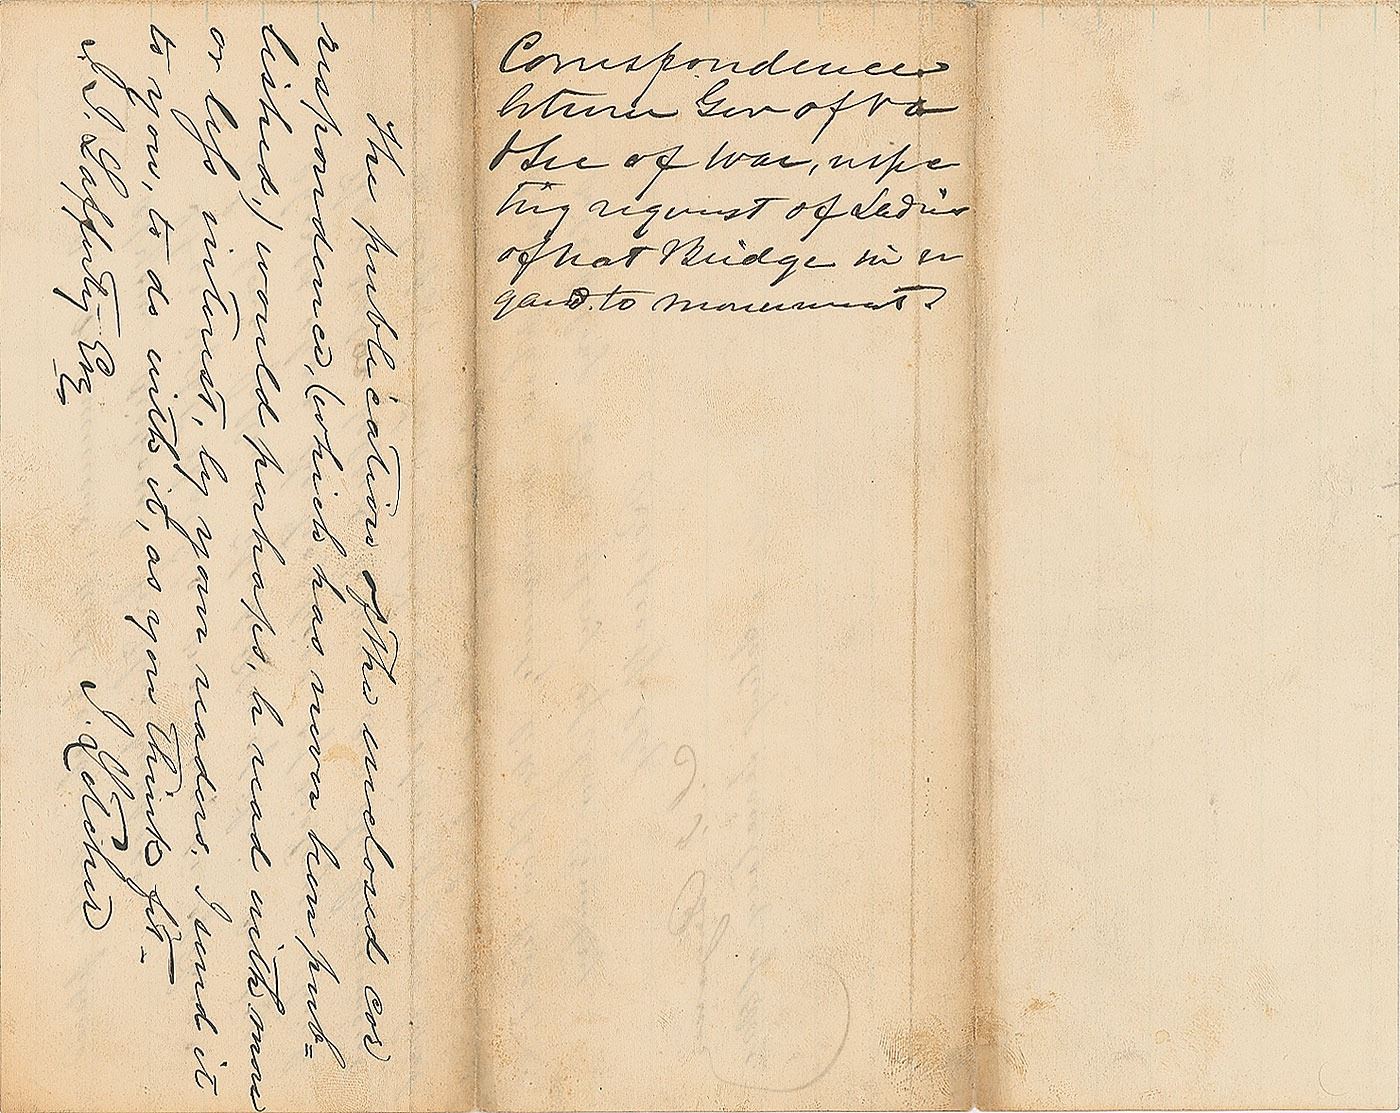 The publication of the inclosed cor
respondence, (which has never been pub=
lished,) would perhaps, be read with more
or less interest, by your readers. I send it
to you, to do with it, as you think fit -
J. J. Lafferty Esq
J. Letcher
Correspondence
between Gov of Va
& Sec of War, respe
ting request of Ladies
of Nat Bridge in re
gard to monument